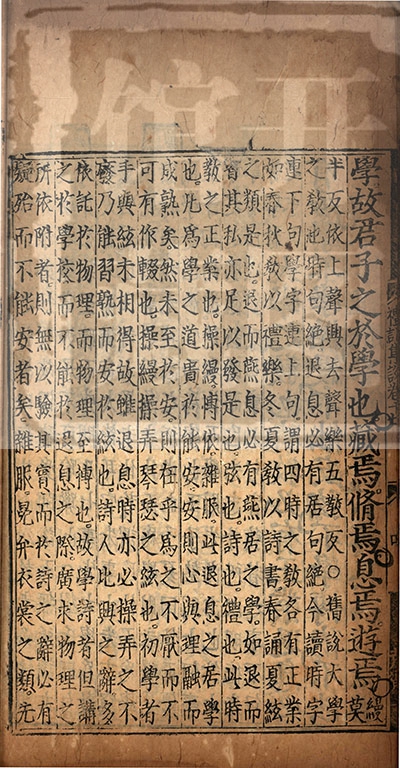 學故君子之於學也藏焉脩焉息焉遊焉縵莫
半反依上聲興去聲樂五教反○舊說大學
之教也時句絕退息必有居句絕今讀時字
連下句學字連上句謂四時之教各有正業
如春秋教以禮樂冬夏教以詩書春誦夏絃
之類是也退而燕息必有燕居之學如退而
省其私亦足以發是也弦也詩也禮也此時
教之正業也操縵博依雜服此退息之居學
也凡爲學之道貴於能安安則心與理融而
成熟矣然未至於安則在乎爲之不厭而不
可有作輟也操縵操弄琴瑟之絃也初學者
手與絃未相得故雖退息時亦必操弄之不
廢乃能習熟而安於絃也詩人比興之辭多
依託於物理而物理至博也故學詩者但講
之於學校而不能於退息之際廣求物理之
所依附者則無以驗其實而於詩之辭必有
疑殆而不能安者矣雜服冕弁衣裳之類先